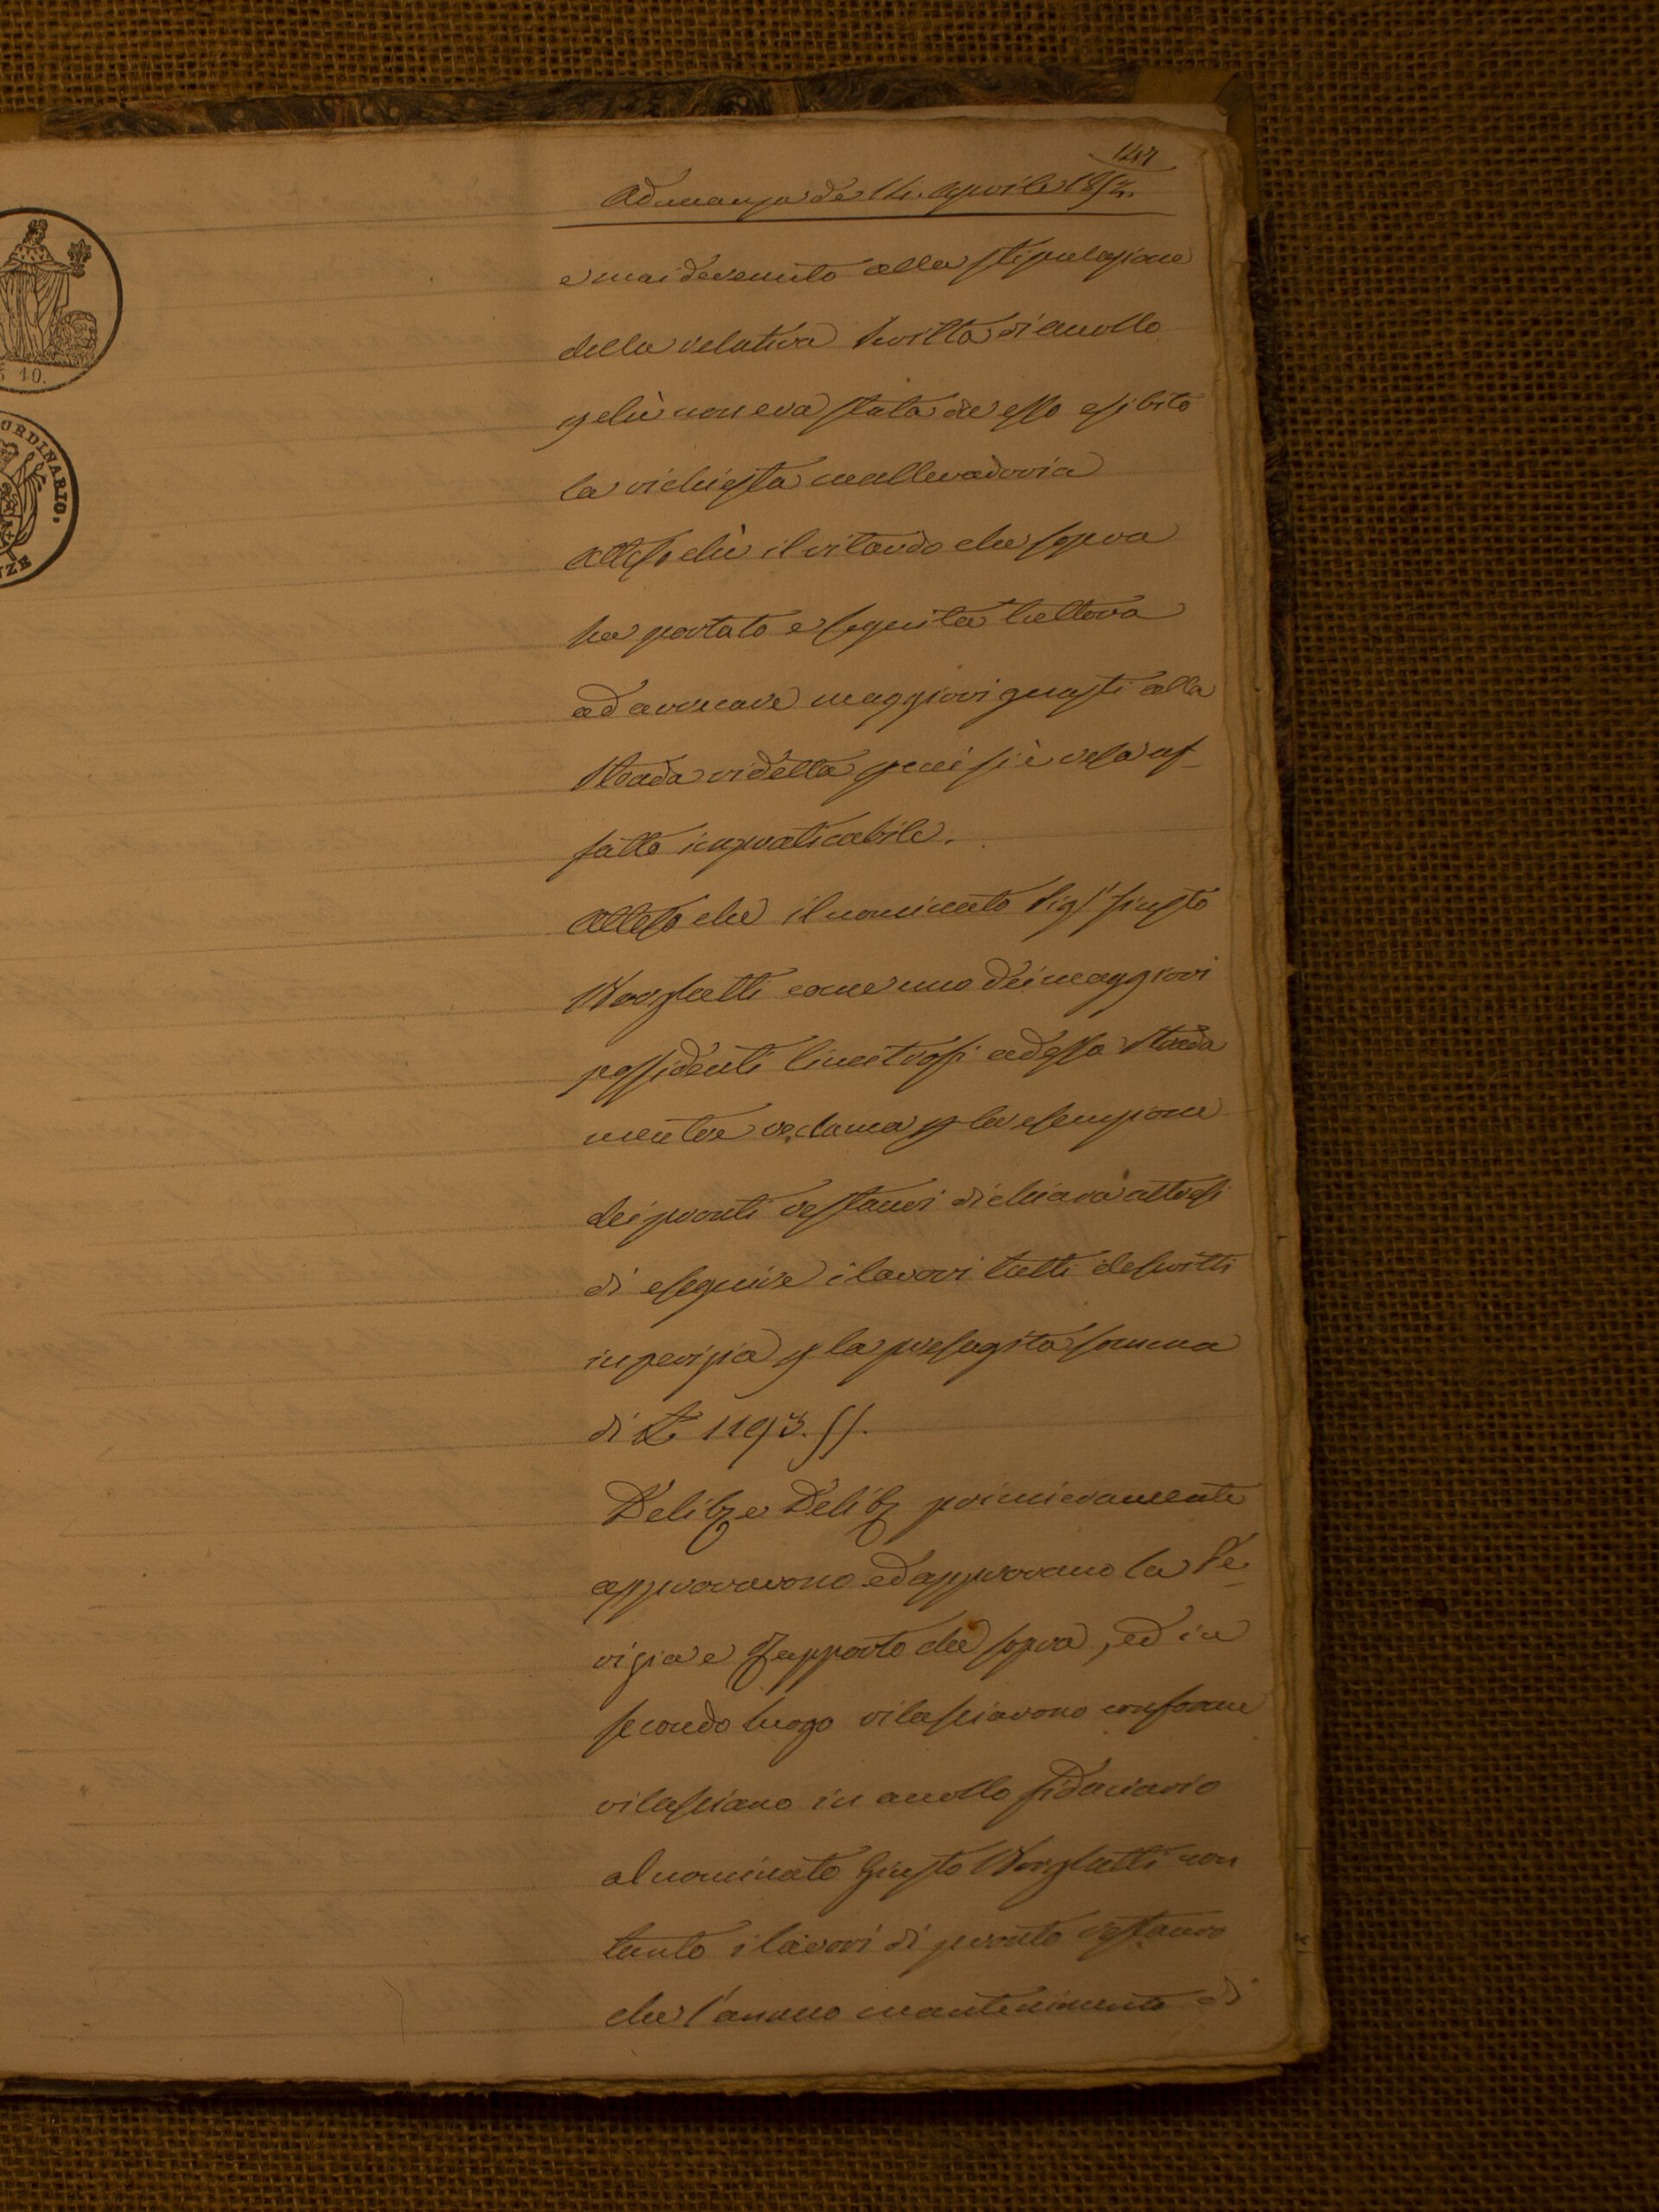 Adunanza de 14. Aprile 185
e mai devenuto alla stipulazione
della relativa Scritta di accollo
p chè non era stata da esso esibito
la richiesta mallevadoria
Atteso chè il ritardo che sopra
ha portato e seguita tuttora
ad arrecare maggiori guasti alla
Strada ridetta che si è resa af-
fatto impraticabile.
Atteso che il nominato Sig.r Giusto
come uno dei maggiori
possidenti limitrofi ad essa Strada
mentre reclama p la esenzione
dei pronti restauri dichiara altresì
di eseguire i lavori tutti descritti
in perizia p la presagita somma
di £ 1193.
Delib. e Delib. primieramente
approvarono ed approvano la Pe-
rizia e Rapporto che sopra, ed in
secondo luogo rilasciarono conforme
rilasciano in accollo fiduciario
al nominato Giusto non
tanto i lavori di pronto restauro
che l'annuo mantenimento di
5 10.
ORDINARIO.
NZE